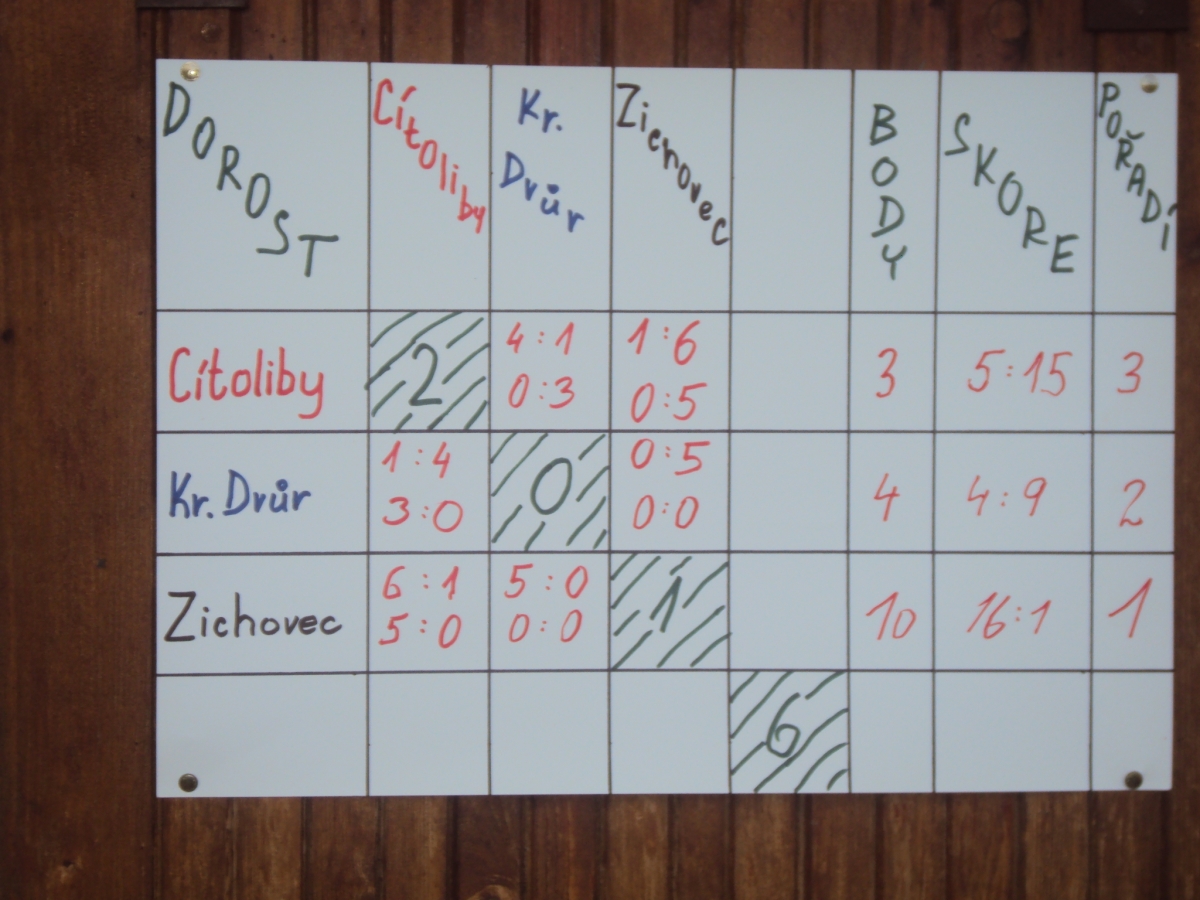 DOROST Cítoliby Kr. Dvůr Zichovec BODY SKORE POŘADÍ
Cítoliby 2 4:1 1:6 3 5:15 3
0:3 0:5
Kr. Dvůr 1:4 0 0:5 4 4:9 2
3:0 0:0
Zichovec 6:1 5:0 1 10 16:1 1
5:0 0:0
6